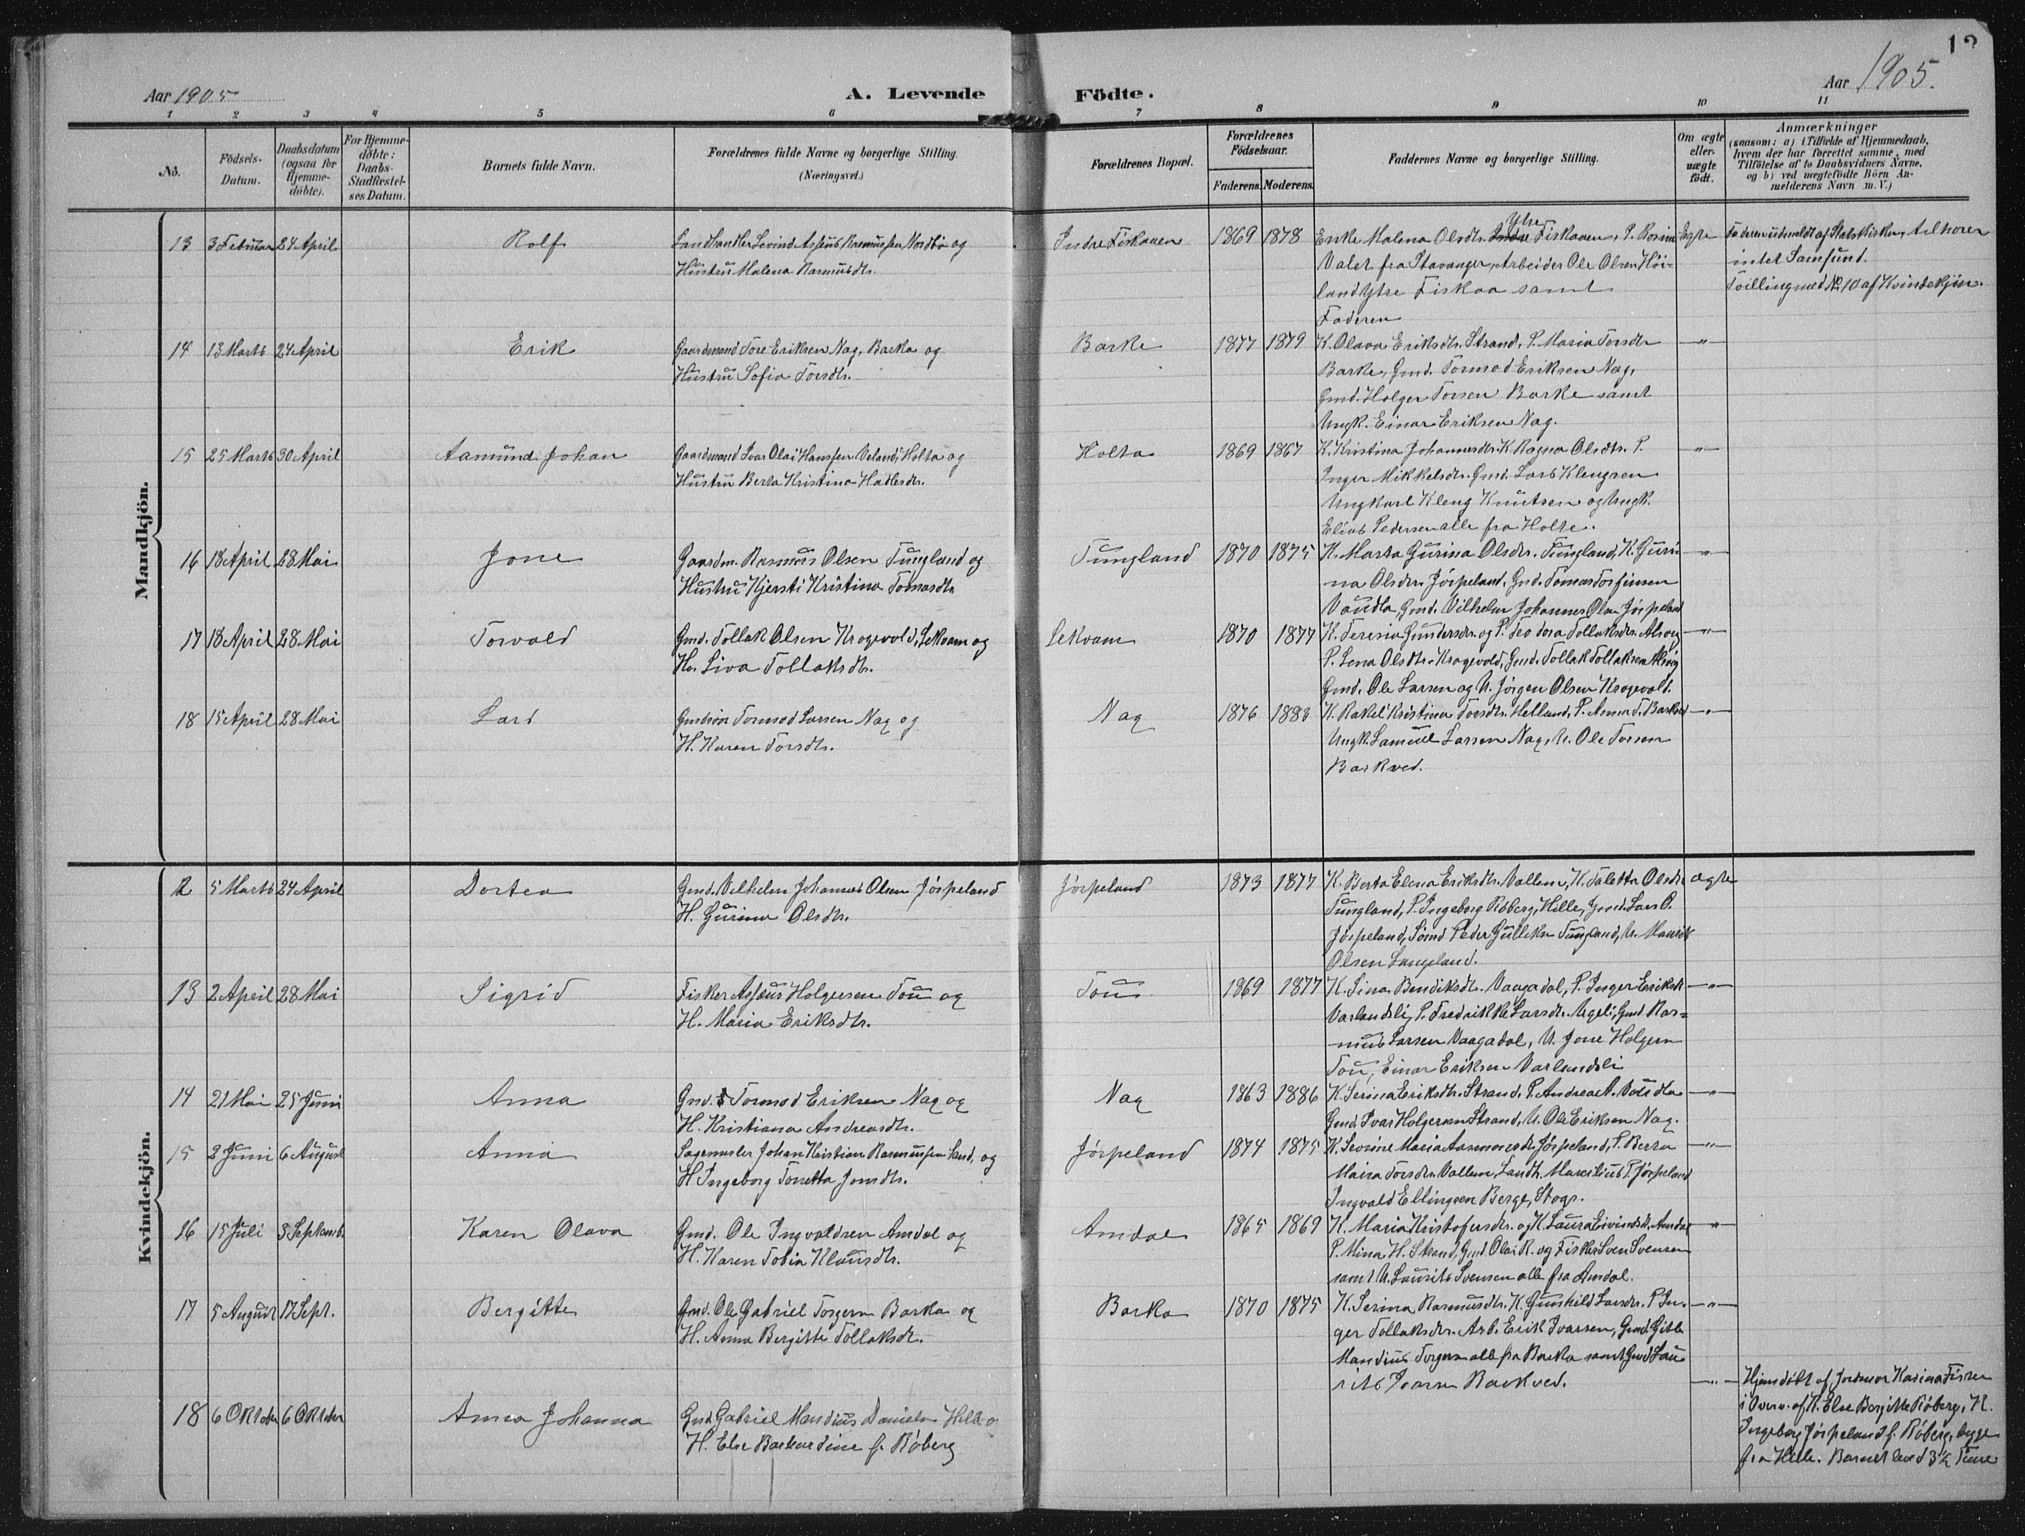 12
Aar 1905
A. Levende Födte.
Aar 1905.
1 2 3 4 5 6 7 8 9 10 11
No.
Födsels-
Datum.
Daabsdatum
(ogsaa för
Hjemme-
döbte).
For Hjemme-
döbte:
Daabs-
Stadfæstel-
ses Datum.
Barnets fulde Navn.
Forældrenes fulde Navne og borgerlige Stilling.
(Næringsvei.)
Forældrenes Bopæl.
Forældrenes
Födselsaar.
Faderens. Moderens.
Faddernes Navne og borgerlige Stilling.
Om ægte
eller
uægte
födt.
Anmærkninger
(saasom: a) i Tilfælde af Hjemmedaab,
hvem der har forrettet samme, med
Tilföielse af to Daabsvidners Navne,
og b) ved uægtefödte Börn An-
melderens Navn m. V.)
Mandkjön.
13 3 Februar 24 April Rolf
Landhandler Sevind Asseus Rasmussen Nordbø og
Hustru Malena Rasmusdtr.
Indre Fiskaaen 1869 1878
Enke Malena Olsdtr. Ytre Fiskaaen, P. Rosine
Valet fra Stavanger, Arbeider Ole Olsen Høi-
land Ytre Fiskaa samt
Faderen
Egte
Faderen udmeldt af Statskirken, tilhører
intet Samfund.
Tvilling med No 10 af Kvindekjön.
14 13 Marts 24 April Erik
Gaardmand Tore Eriksen Nag, Barka og
Hustru Sofia Torsdtr.
Barke 1877 1879
K. Olava Eriksdtr. Strand, P. Maria Torsdr
Barke, Gmd. Tormod Eriksen Nag,
Gmd. Holger Torsen Barke samt
Ungk. Einar Eriksen Nag.
—"—
15 25 Marts 30 April Aamund Johan
Gaardmand Ivar Olai Hanssen Veland, Holta og
Hustru Berta Kristina Hadlesdr.
Holta 1869 1867
K. Kristina Johannesdtr. K. Ragna Olsdtr. P.
Inger Mikkelsdtr. Gmd. Lars Klengsen
Ungkarl Kleng Knutsen og Ungk.
Elias Pedersen alle fra Holte.
—"—
16 18 April 28 Mai Jone
Gaardm. Rasmus Olsen Tungland og
Hustru Kjersti Kristina Tomasdtr
Tungland 1870 1875
K. Marta Gurina Olsdtr. Tungland, K. Guri-
na Olsdtr. Jørpeland, Gmd. Tomas Torfinsen
Vaudla, Gmd. Vilhelm Johannes Olsn Jørpeland
—"—
17 18 April 28 Mai Torvald
Gmd. Tollak Olsen Krogevold, Lekvam og
Hu. Siva Tollaksdtr.
Lekvam 1870 1877
K. Teresia Gundersdtr. og P. Teodora Tollaksdtr. Alsvig
P. Lena Olsdtr. Krogevold, Gmd. Tollak Tollaksen Alsvig
Gmd. Ole Larsen og U. Jørgen Olsen Krogevold.
—"—
18 15 April 28 Mai Lars
Gmdsøn Tormod Larsen Nag og
H. Karen Torsdtr.
Nag 1876 1883
K. Rakel Kristina Torsdtr. Helland, P. Anna T. Barkved
Ungk. Samuel Larsen Nag, U. Ole Torsen
Barkved.
—"—
Kvindekjön.
12 5 Marts 24 April Dortea
Gmd. Vilhelm Johannes Olsen Jørpeland
H. Gurina Olsdtr.
Jørpeland 1873 1877
K. Berta Elena Eriksdtr. Vallem, K. Taletta Olsdtr
Tungland, P. Ingeborg Røberg, Hille, Gmd. Lars O.
Jørpeland, Peder Gulleksn Tungland, U. Maurits
Olsen Langeland.
ægte
13 2 April 28 Mai Sigrid
Fisker Asseus Holgersen Tou og
H. Maria Eriksdtr.
Tou 1869 1877
K. Sina Bendiksdtr. Vaagadal, P. Inger Eriksdr
Varlandsli, P. Fredrikke Larsdtr. Ugeli, Gmd. Ras-
mus Larsen Vaagadal, U. Jone Holgersn
Tou, Einar Eriksen Varlandsli
—"—
14 21 Mai 25 Juni Anna
Gmd. Tormod Eriksen Nag og
H. Kristiana Andreasdtr.
Nag 1863 1886
K. Serina Eriksdtr. Strand, P. Andrea A. Vaudla
Gmd. Ivar Holgersen Strand, U. Ole Eriksen Nag.
—"—
15 2 Juni 6 August Anna
Sagmester Johan Kristian Rasmussen Sand, og
H. Ingeborg Tonetta Jonsdtr.
Jørpeland 1874 1875
K. Severine Maria Jørpeland, P. Berta
Maria Torsdtr. Vallem, Landh. Marcelius P. Jørpeland
Ingvald Ellingsen Berge, Stogs.
—"—
16 15 Juli 3 Septemb. Karen Olava
Gmd. Ole Ingvaldsen Amdal og
H. Karen Tobia Klausdtr.
Amdal 1865 1869
K. Maria Kristofersdtr. og K. Laura Eivindsdtr. Amdal
P. Mina H. Strand, Gmd. Olai R. og Fisker Sven Svensen
samt U. Laurits Svensen alle fra Amdal.
—"—
17 5 August 17 Sept. Bergitte
Gmd. Ole Gabriel Torgersn Barka og
H. Anna Bergitte Tollaksdr.
Barka 1870 1875
K. Serina Rasmusdtr. K. Gunhild Larsdtr. P. In-
ger Tollaksdtr. Arb. Erik Ivarsen, Gmd. Gitle
Mandius Torgersn alle fra Barka samt Gmd Lau
rits Ivarsn Barkved.
—"—
18 6 Oktober 6 Oktober Anna Johanna
Gmd. Gabriel Mandius Danielsn Hille o
H. Else Barkardine f. Røberg
—"—
Hjemdøbt af Jordmor Karina Fisker
i Overv. af K. Else Bergitte Røberg, K.
Ingeborg Jørpeland f. Røberg, begge
fra Hille. Barnet leved 3½ Time